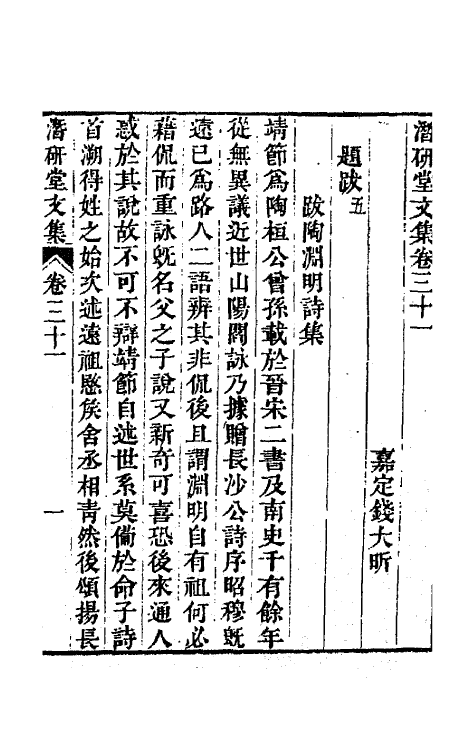 潛研堂文集卷三十一
嘉定錢大昕
題跋五
跋陶淵明詩集
靖節爲陶桓公曾孫載於晉宋二書及南史千有餘年
從無異議近世山陽閻詠乃據贈長沙公詩序昭穆旣
遠已爲路人二語辨其非侃後且謂淵明自有祖何必
藉侃而重詠旣名父之子說又新奇可喜恐後來通人
惑於其說故不可不辯靖節自述世系莫備於命子詩
首溯得姓之始次述遠祖愍矦舍丞相靑然後頌揚長
潛研堂文集
卷三十一
一